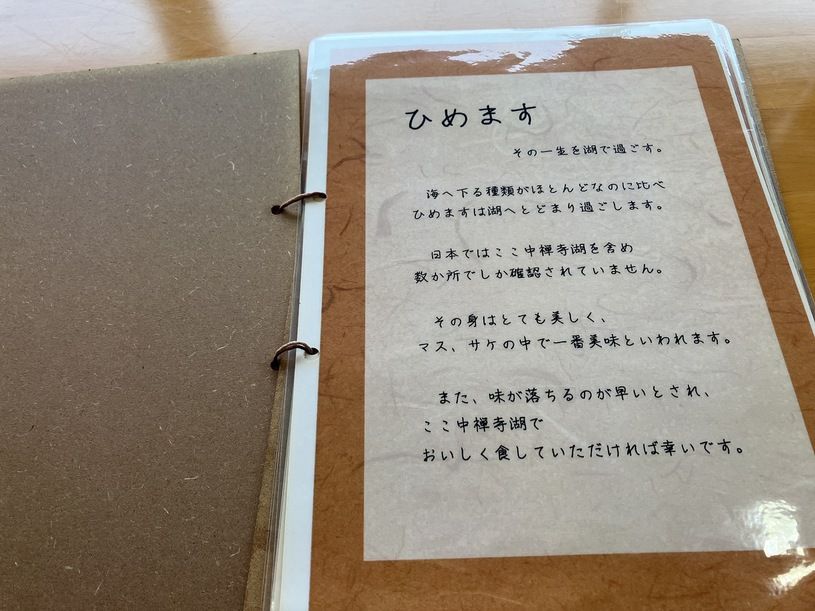 ひめます
その一生を湖で過ごす。
海へ下る種類がほとんどなのに比べ
ひめますは湖へとどまり過ごします。
日本ではここ中禅寺湖を含め
数か所でしか確認されていません。
その身はとても美しく、
マス、サケの中で一番美味といわれます。
また、味が落ちるのが早いとされ、
ここ中禅寺湖で
おいしく食していただければ幸いです。